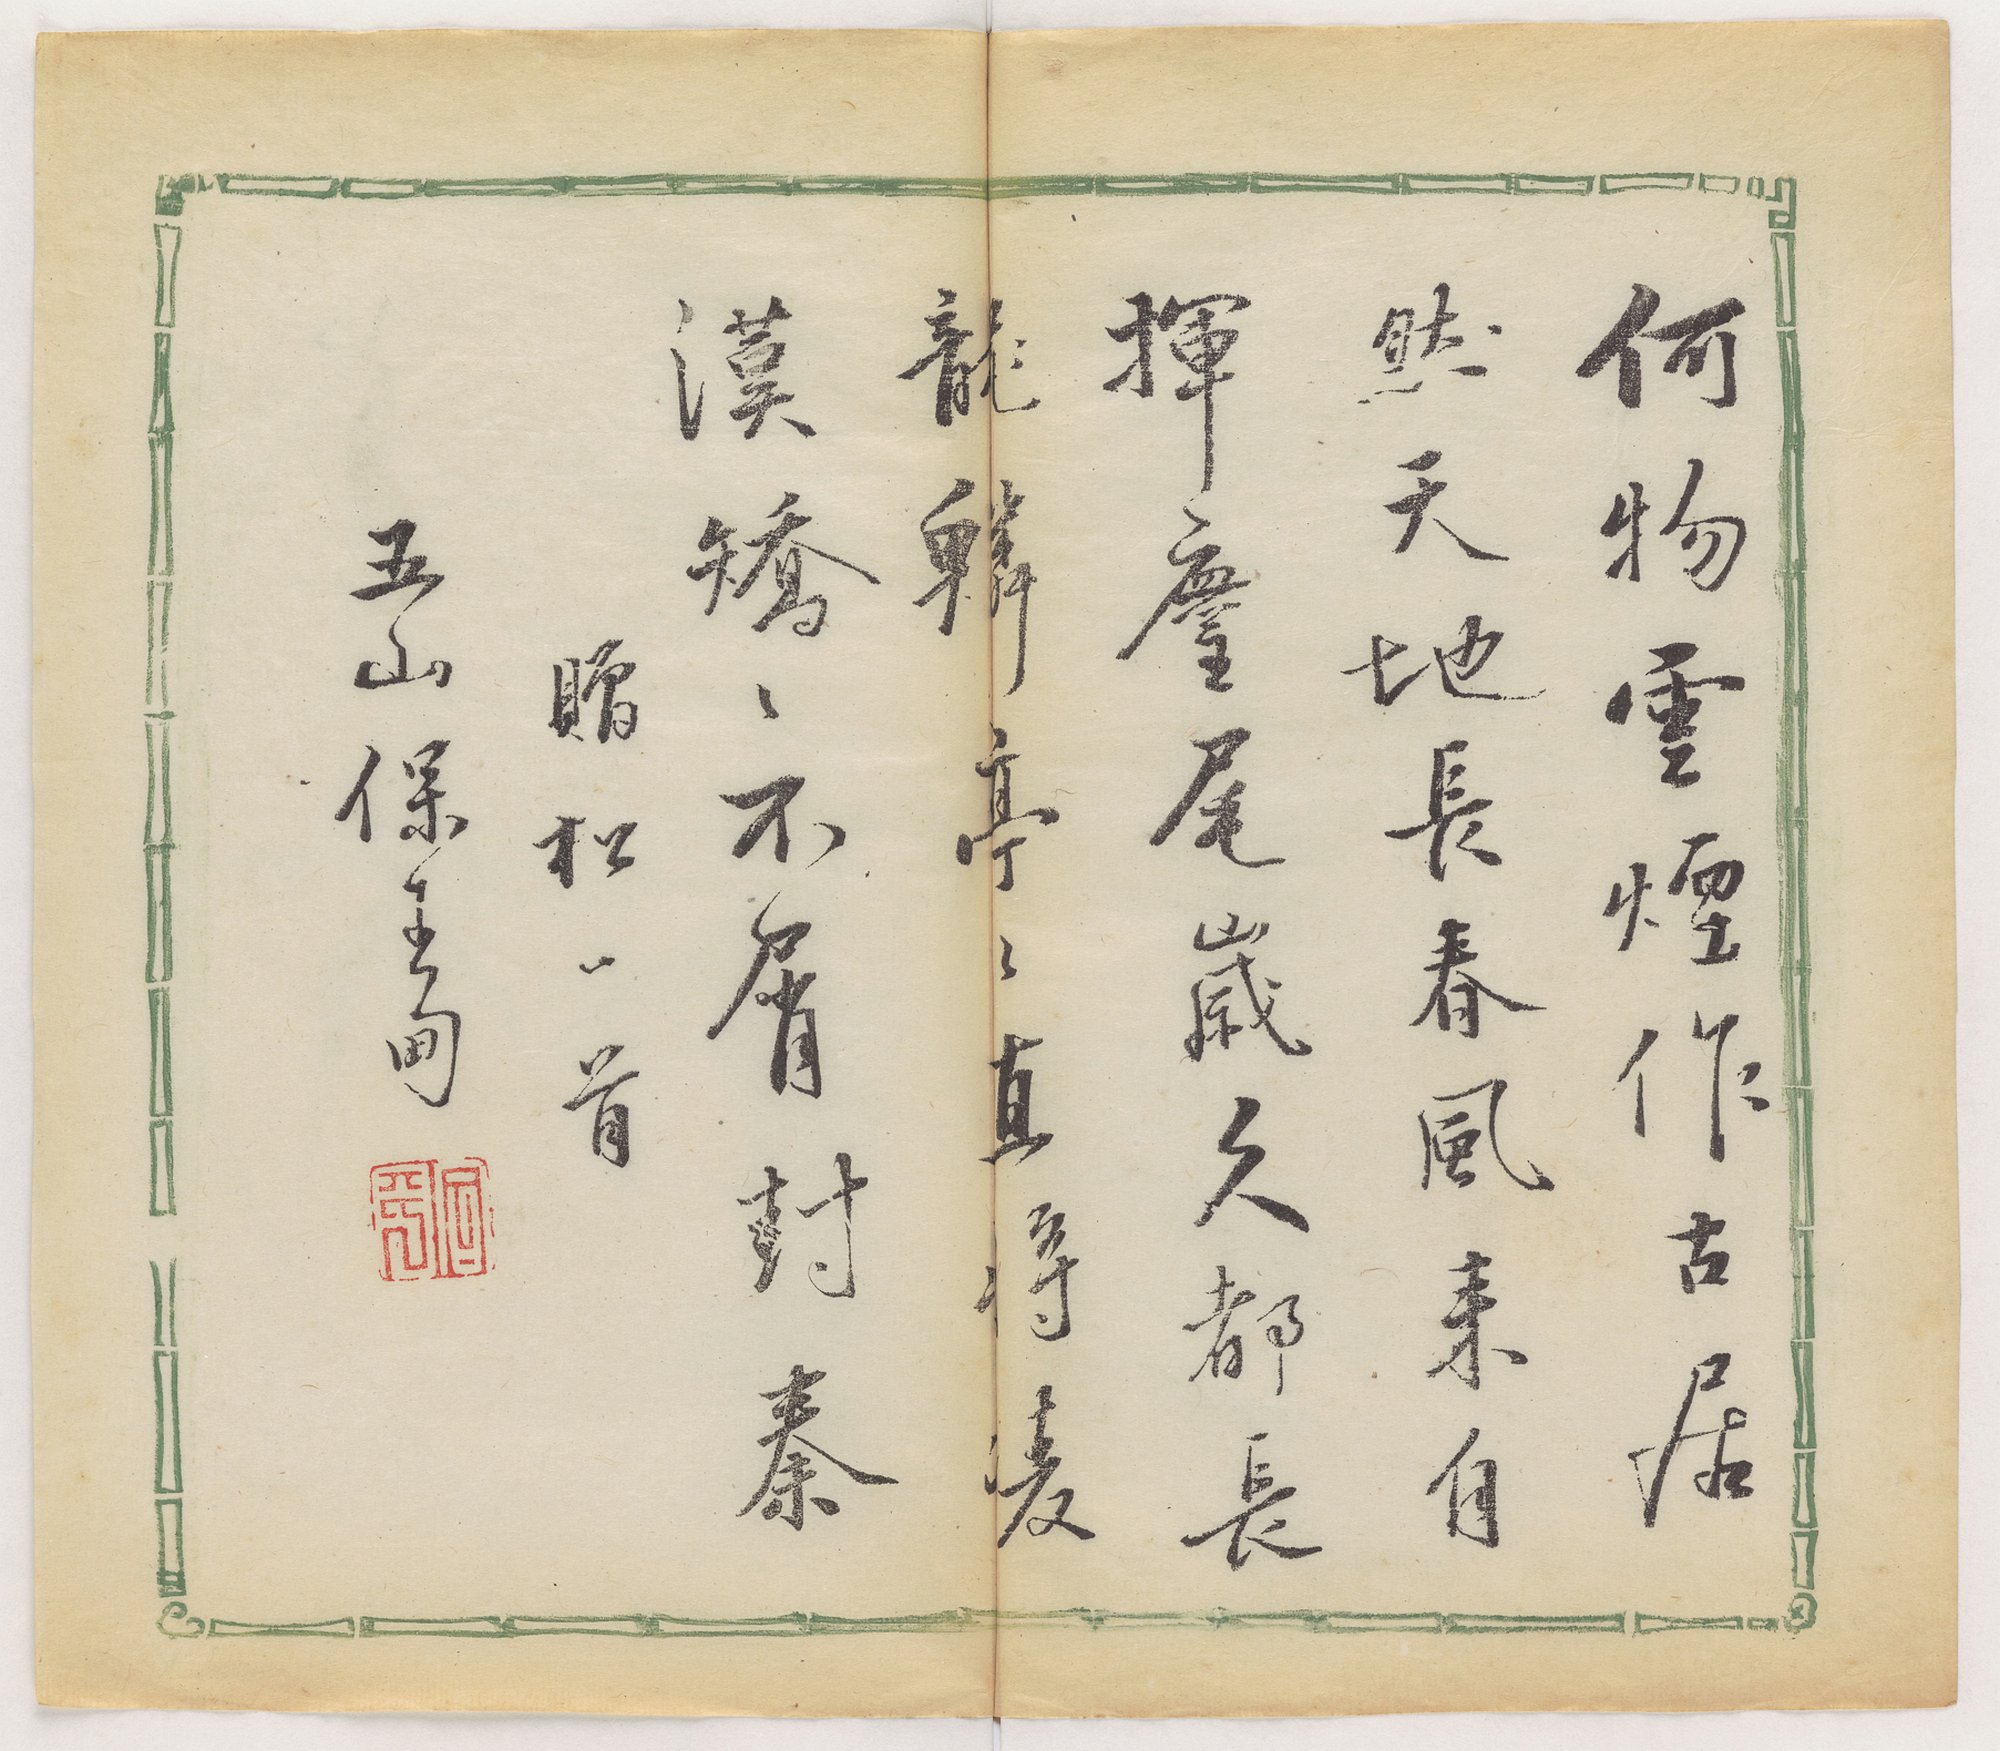 何物雲煙作古居
然天地長春風来自
揮麈尾歳久都長
龍鱗亭〻直将凌
漢矯〻不屑封秦
贈松一首
五山保